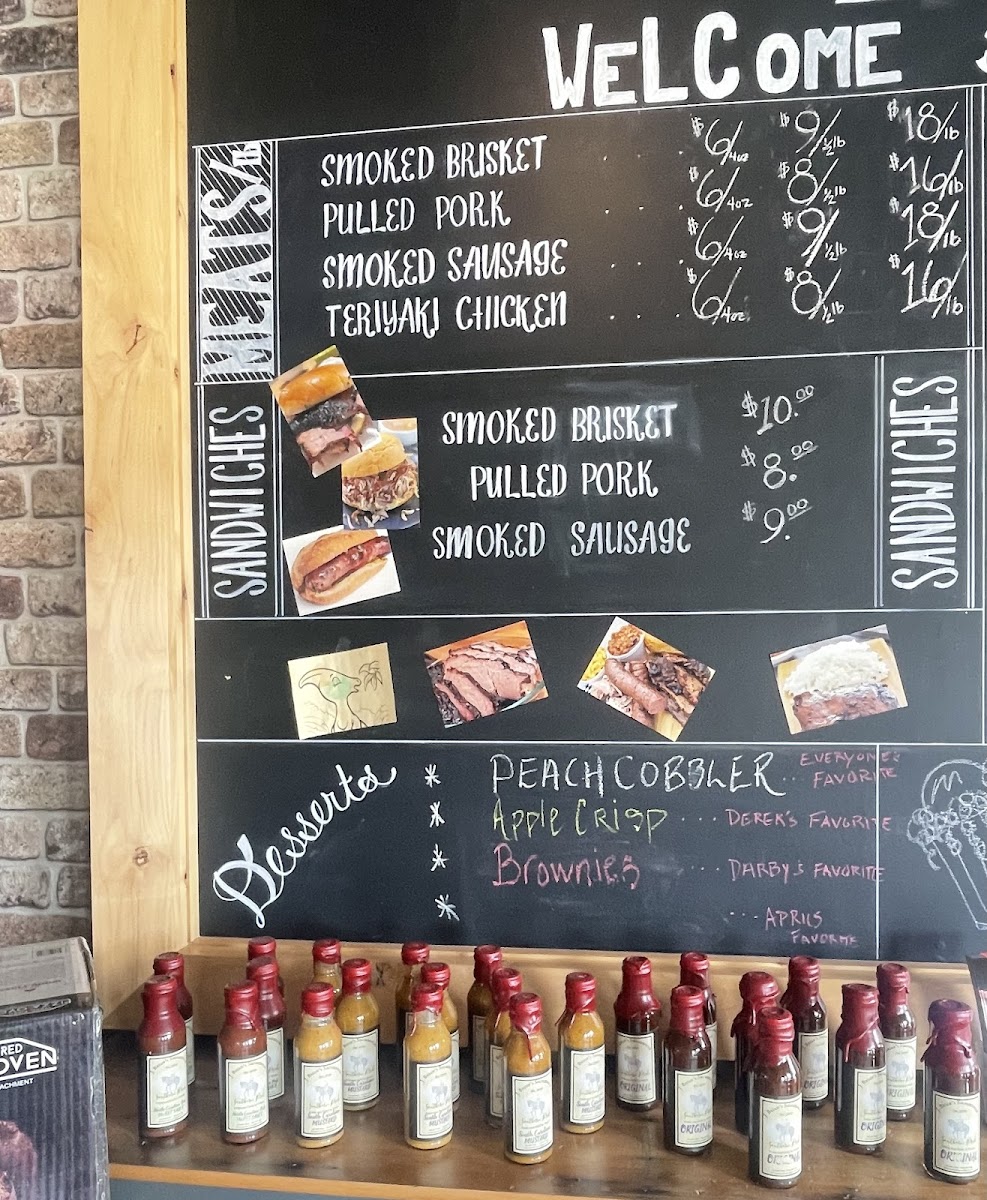 WELCOME
MEATS/lb
SMOKED BRISKET . . . . $6/4oz $9/½lb $18/lb
PULLED PORK . . . . $6/4oz $8/½lb $16/lb
SMOKED SAUSAGE . . . . $6/4oz $9/½lb $18/lb
TERIYAKI CHICKEN . . . . $6/4oz $8/½lb $16/lb
SANDWICHES
SMOKED BRISKET $10.00
PULLED PORK $8.00
SMOKED SAUSAGE $9.00
SANDWICHES
Desserts
* PEACH COBBLER ... EVERYONE'S FAVORITE
* Apple Crisp .... DEREK'S FAVORITE
* Brownies ... DARBY'S FAVORITE
* ... APRILS FAVORITE
RED
OVEN
MUSTARD
MUSTARD
ORIGINAL
ORIGINAL
ORIGINAL
ORIGINAL
ORIGINAL